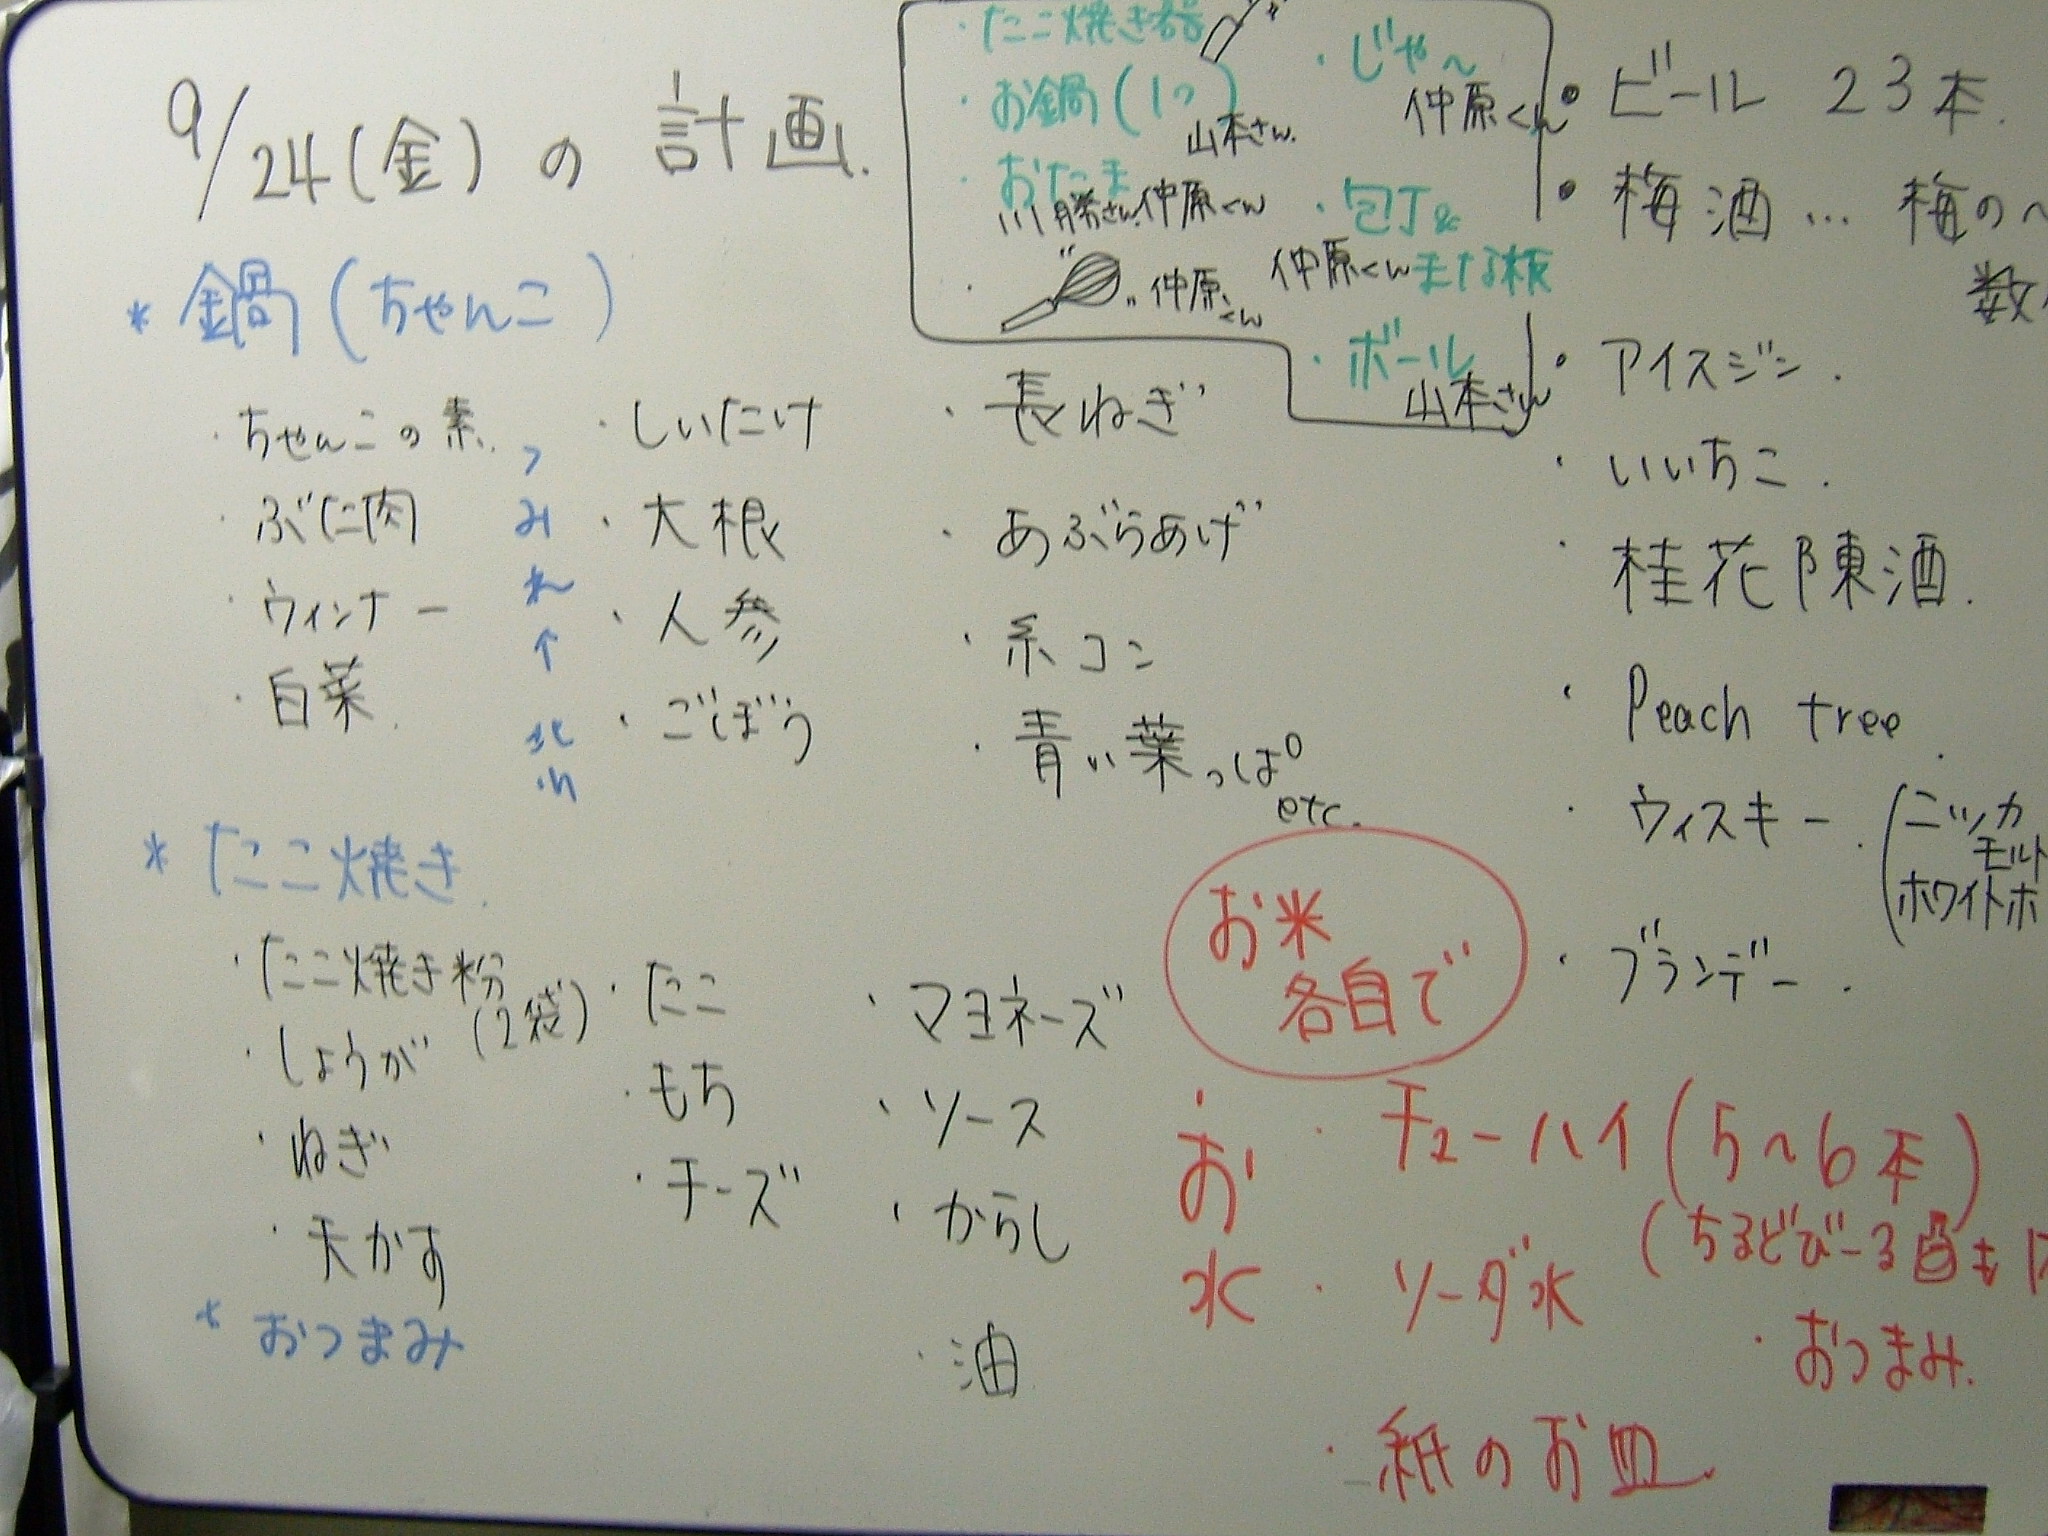 9/24(金)の計画.
・たこ焼き器
・お鍋(1つ)
山本さん.
・おたま
川勝さん.仲原くん
仲原くん
・じゃ〜
仲原くん
・包丁&
まな板
仲原くん
・ボール
山本さん
*鍋(ちゃんこ)
・ちゃんこの素.
・ぶた肉
・ウィンナー
・白菜.
つみれ
↑
・しいたけ
・大根
・人参
・ごぼう
・長ねぎ
・あぶらあげ
・糸コン
・青い葉っぱ
etc.
*たこ焼き.
・たこ焼き粉
(2袋)
・しょうが
・ねぎ
・天かす
・たこ
・もち
・チーズ
・マヨネーズ
・ソース
・からし
・油
*おつまみ
・ビール 23本.
・梅酒…梅の〜
数
・アイスジン.
・いいちこ.
・桂花陳酒.
・Peach tree.
・ウィスキー.(ニッカ
モルト
ホワイトホ
・ブランデー.
お米
各自で
・お水
・チューハイ(5〜6本)
(ちるどびーる
も
・ソーダ水
・おつまみ.
・紙のお皿.